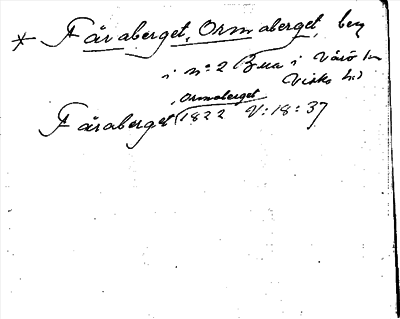 * Fåraberget, Ormaberget, berg
i nº 2 Bua i Värö sn
Viske hd
, Ormaberget
Fåraberget 1822 V: 18: 37